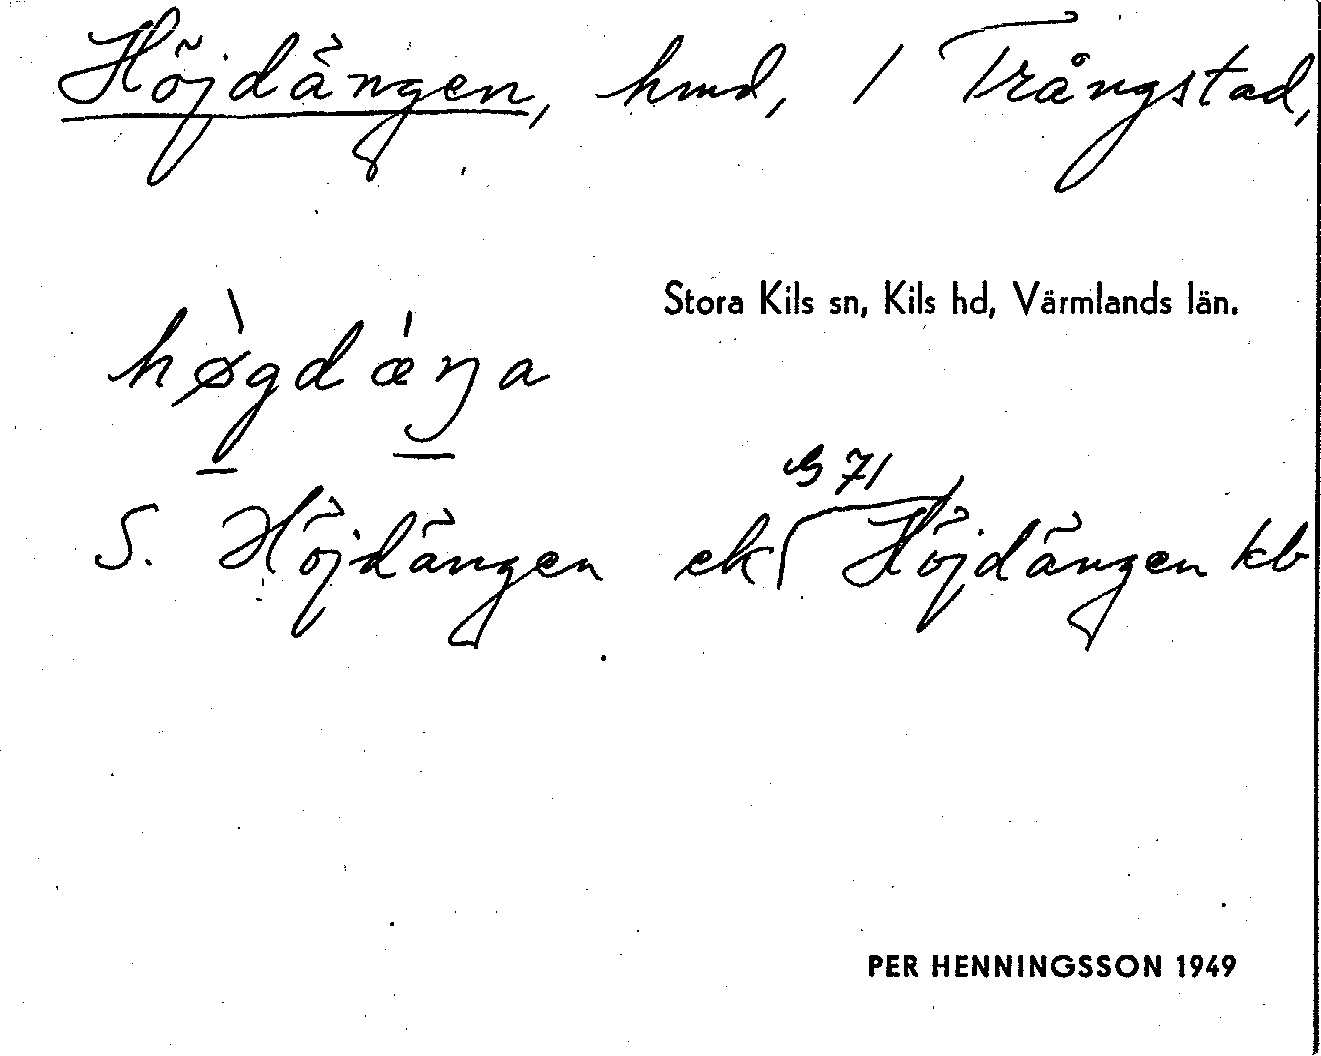 Höjdängen, hmd, 1 Trångstad,
Stora Kils sn, Kils hd, Värmlands län.
hø̀gdǽŋa
B 71
S. Höjdängen ek Höjdängen kb
PER HENNINGSSON 1949